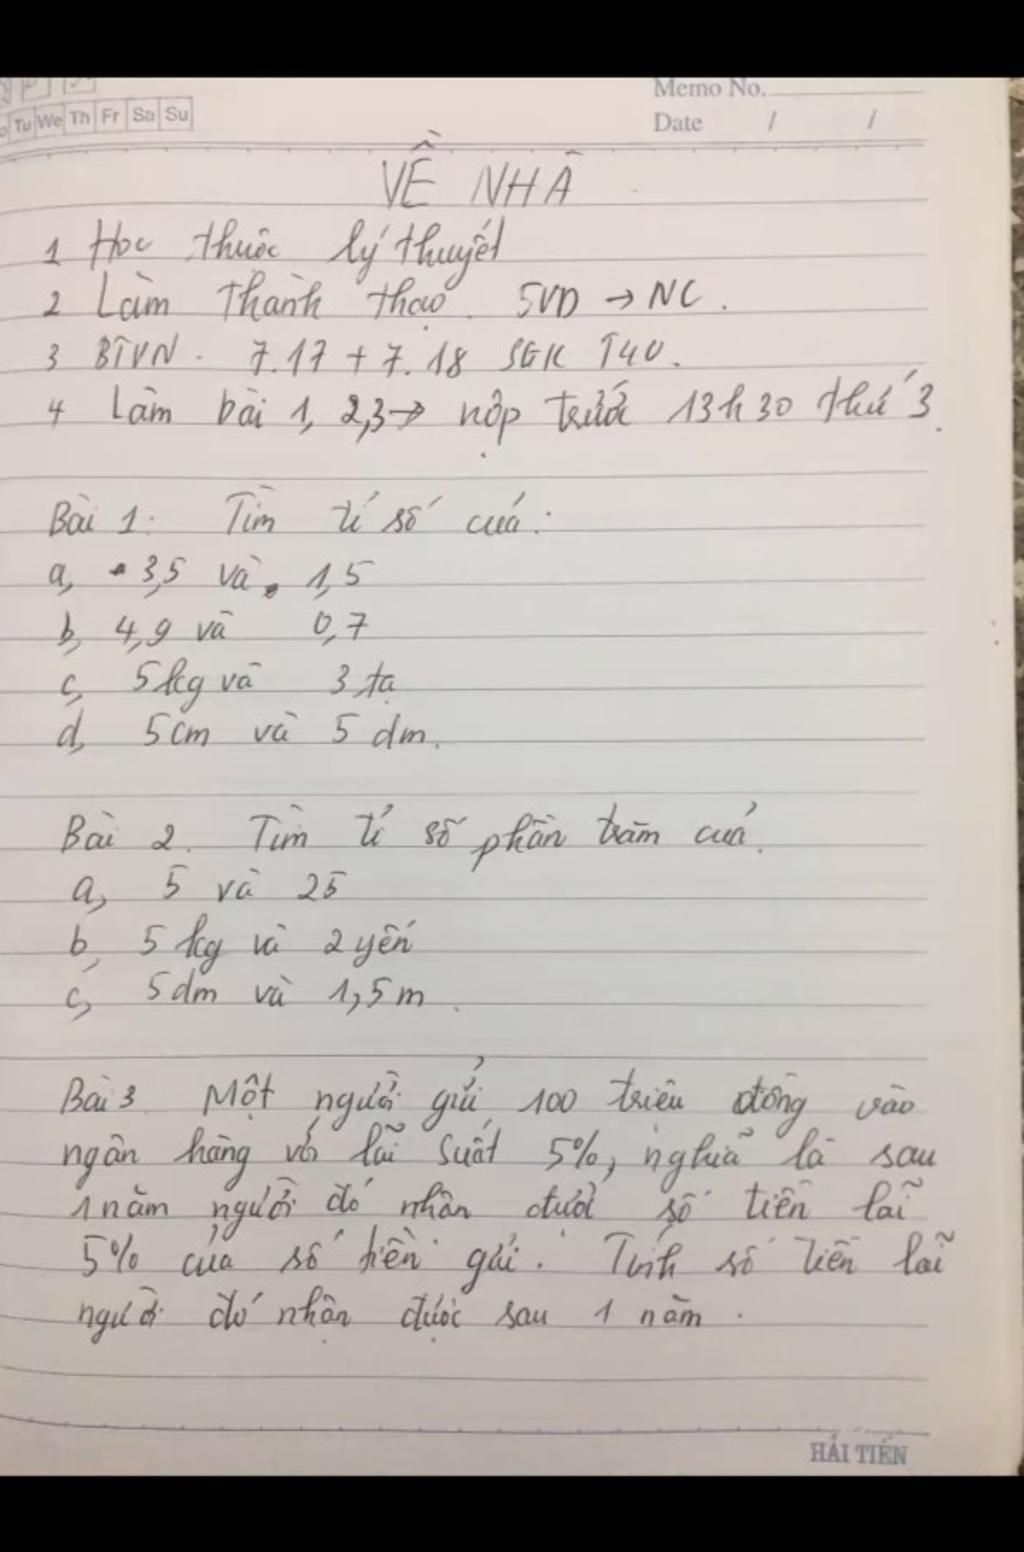 Memo No.
Tu We Th Fr Sa Su
Date / /
VỀ NHÀ
1 Học thuộc lý thuyết
2 Làm thành thạo 5VD → NC.
3 BTVN. 7.17 + 7.18 SGK T40.
4 Làm bài 1, 2,3 → nộp trước 13h30 thứ 3.
Bài 1: Tìm tỉ số của:
a, -3,5 và 1,5
b, 4,9 và 0,7
c, 5kg và 3 tạ
d, 5cm và 5 dm.
Bài 2. Tìm tỉ số phần trăm của.
a, 5 và 25
b, 5 kg và 2 yến
c, 5dm và 1,5m.
Bài 3 Một người gửi 100 triệu đồng vào
ngân hàng với lãi suất 5%, nghĩa là sau
1 năm người đó nhận được số tiền lãi
5% của số tiền gửi. Tính số tiền lãi
người đó nhận được sau 1 năm.
HẢI TIẾN